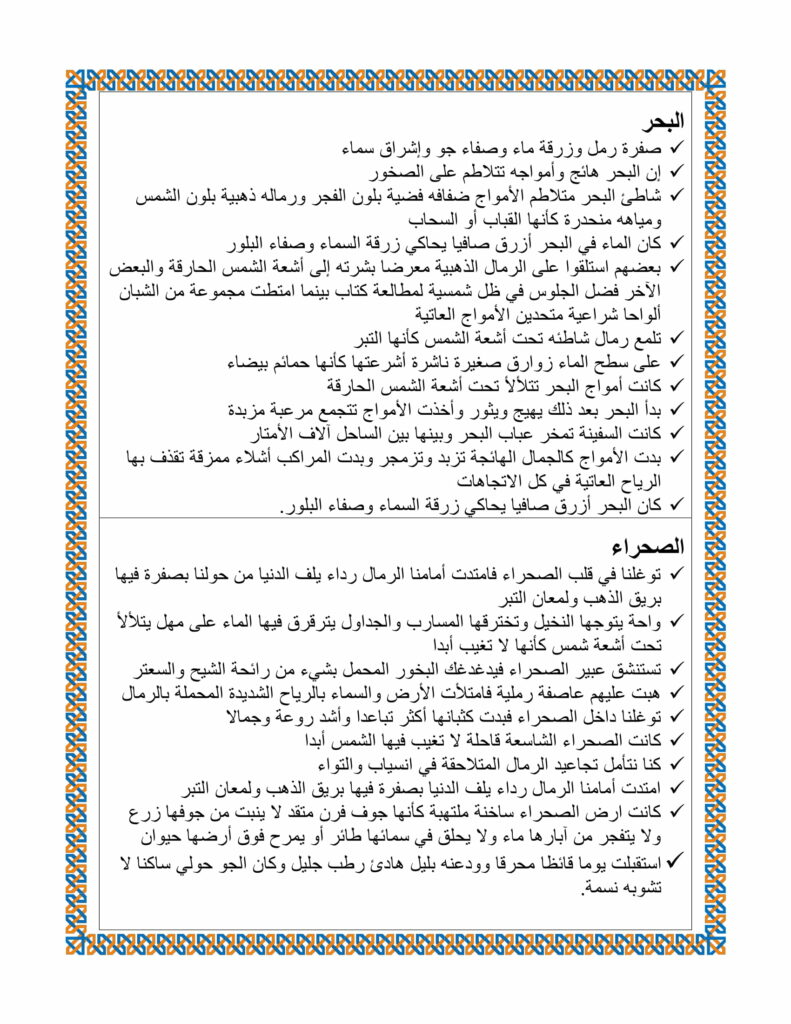 البحر
✓ صفرة رمل وزرقة ماء وصفاء جو وإشراق سماء
✓ إن البحر هائج وأمواجه تتلاطم على الصخور
✓ شاطئ البحر متلاطم الأمواج ضفافه فضية بلون الفجر ورماله ذهبية بلون الشمس
ومياهه منحدرة كأنها القباب أو السحاب
✓ كان الماء في البحر أزرق صافيا يحاكي زرقة السماء وصفاء البلور
✓ بعضهم استلقوا على الرمال الذهبية معرضا بشرته إلى أشعة الشمس الحارقة والبعض
الآخر فضل الجلوس في ظل شمسية لمطالعة كتاب بينما امتطت مجموعة من الشبان
ألواحا شراعية متحدين الأمواج العاتية
✓ تلمع رمال شاطئه تحت أشعة الشمس كأنها التبر
✓ على سطح الماء زوارق صغيرة ناشرة أشرعتها كأنها حمائم بيضاء
✓ كانت أمواج البحر تتلألأ تحت أشعة الشمس الحارقة
✓ بدأ البحر بعد ذلك يهيج ويثور وأخذت الأمواج تتجمع مرعبة مزبدة
✓ كانت السفينة تمخر عباب البحر وبينها بين الساحل آلاف الأمتار
✓ بدت الأمواج كالجمال الهائجة تزبد وتزمجر وبدت المراكب أشلاء ممزقة تقذف بها
الرياح العاتية في كل الاتجاهات
✓ كان البحر أزرق صافيا يحاكي زرقة السماء وصفاء البلور.
الصحراء
✓ توغلنا في قلب الصحراء فامتدت أمامنا الرمال رداء يلف الدنيا من حولنا بصفرة فيها
بريق الذهب ولمعان التبر
✓ واحة يتوجها النخيل وتخترقها المسارب والجداول يترقرق فيها الماء على مهل يتلألأ
تحت أشعة شمس كأنها لا تغيب أبدا
✓ تستنشق عبير الصحراء فيدغدغك البخور المحمل بشيء من رائحة الشيح والسعتر
✓ هبت عليهم عاصفة رملية فامتلأت الأرض والسماء بالرياح الشديدة المحملة بالرمال
✓ توغلنا داخل الصحراء فبدت كثبانها أكثر تباعدا وأشد روعة وجمالا
✓ كانت الصحراء الشاسعة قاحلة لا تغيب فيها الشمس أبدا
✓ كنا نتأمل تجاعيد الرمال المتلاحقة في انسياب والتواء
✓ امتدت أمامنا الرمال رداء يلف الدنيا بصفرة فيها بريق الذهب ولمعان التبر
✓ كانت ارض الصحراء ساخنة ملتهبة كأنها جوف فرن متقد لا ينبت من جوفها زرع
ولا يتفجر من آبارها ماء ولا يحلق في سمائها طائر أو يمرح فوق أرضها حيوان
✓ استقبلت يوما قائظا محرقا وودعنه بليل هادئ رطب جليل وكان الجو حولي ساكنا لا
تشوبه نسمة.